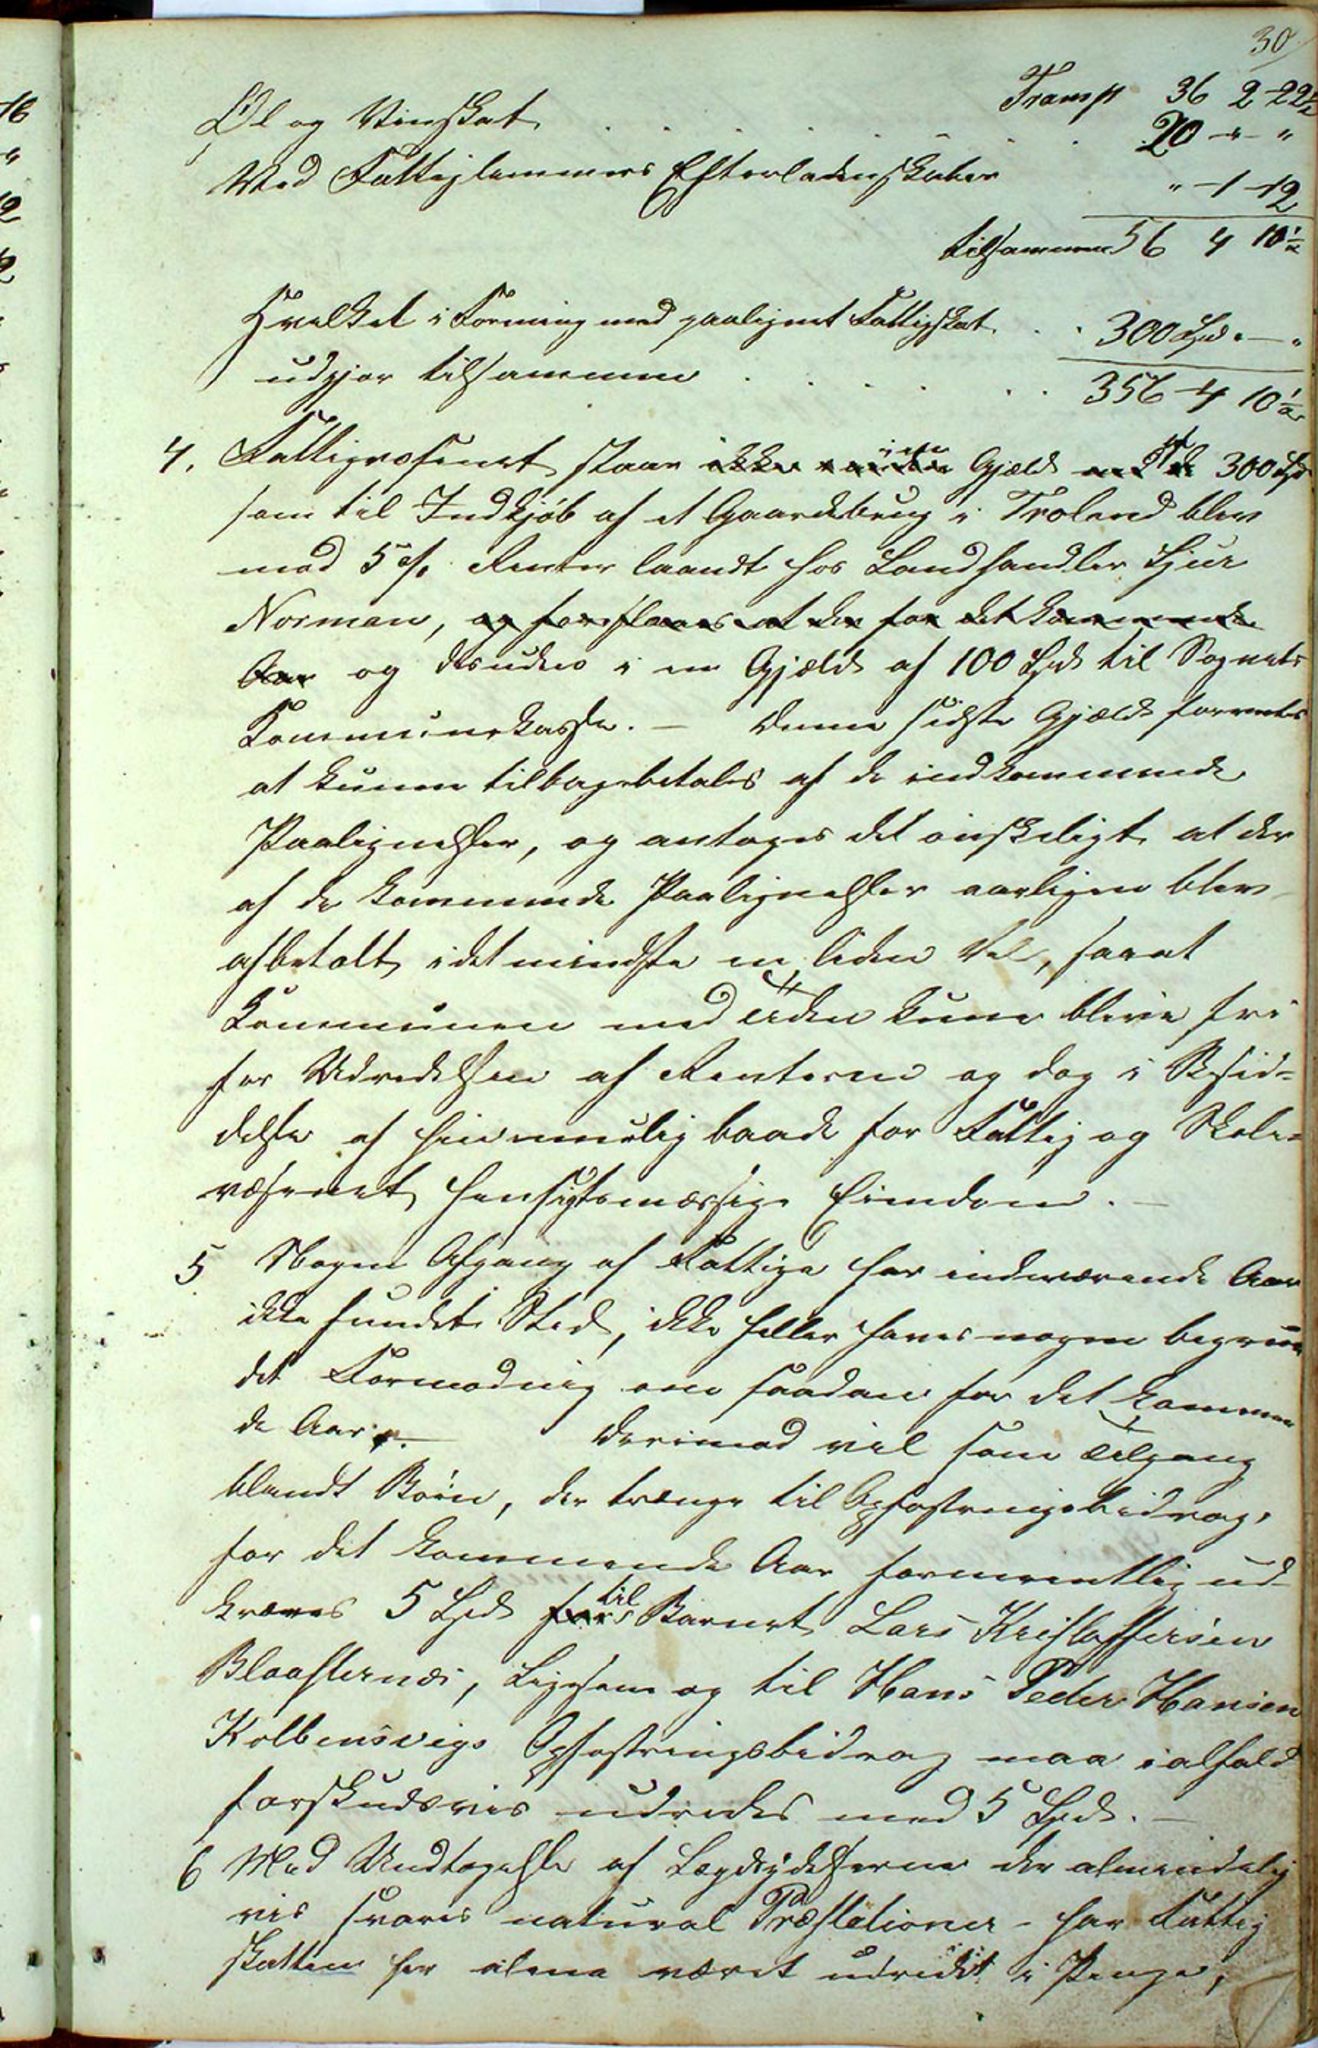 30
Transp 36 2 22½
Øl og Vinskat . . . . . . 20 - " - "
Ved Fattiglemmers Efterladenskaber " - 1 - 12
tilsammen 56 4 10½
Hvilket i Forening med paalignet Fattigskat . . 300 Spd " - "
udgjør tilsammen . . . . . . 356 - 4 10½
4. Fattigvæsenet staar ikke i Gjæld 300 Spd
som til Indkjøb af et Gaardebrug i Troland blev
mod 5 % Renter laandt hos Landhandler Sjur
Norman, og foreslaaes at der for det kommende
Aar og desuden i en Gjæld af 100 Spd til Sognets
Kommunekasse. — Denne sidste Gjæld forventes
at kunne tilbagebetales af de indkommende
Paalignelser, og antages det ønskeligt at der
af de kommende Paalignelser aarligen blev
afbetalt idetmindste en liden Del, saaat
Kommunen med Tiden kunne blive fri
for Udredelsen af Renterne og dog i Besid=
delse af hin muelig baade for Fattig og Skole=
væsenet hensigtsmæssige Eiendom. —
5 Nogen Afgang af Fattige har indeværende Aar
ikke fundet Sted, ikke heller haves nogen begrun
det Formodning om saadan for det kommen
de Aar. — Derimod vil som Tilgang
blandt Børn, der trænge til Opfostringsbidrag,
for det kommende Aar formentlig ud-
kræves 5 Spd for til Barnet Lars Kristoffersen
Blaaflernæs, Ligesom og til Hans Peder Hansen
Kolbensvigs Opfostringsbidrag maa ialfald
forskudsvis udredes med 5 Spd. —
6 Med Undtagelse af Lægdsydelserne der almindelig
vis svares natural Præstationer - har Fattig
skatten her alene været udredet i Penge,